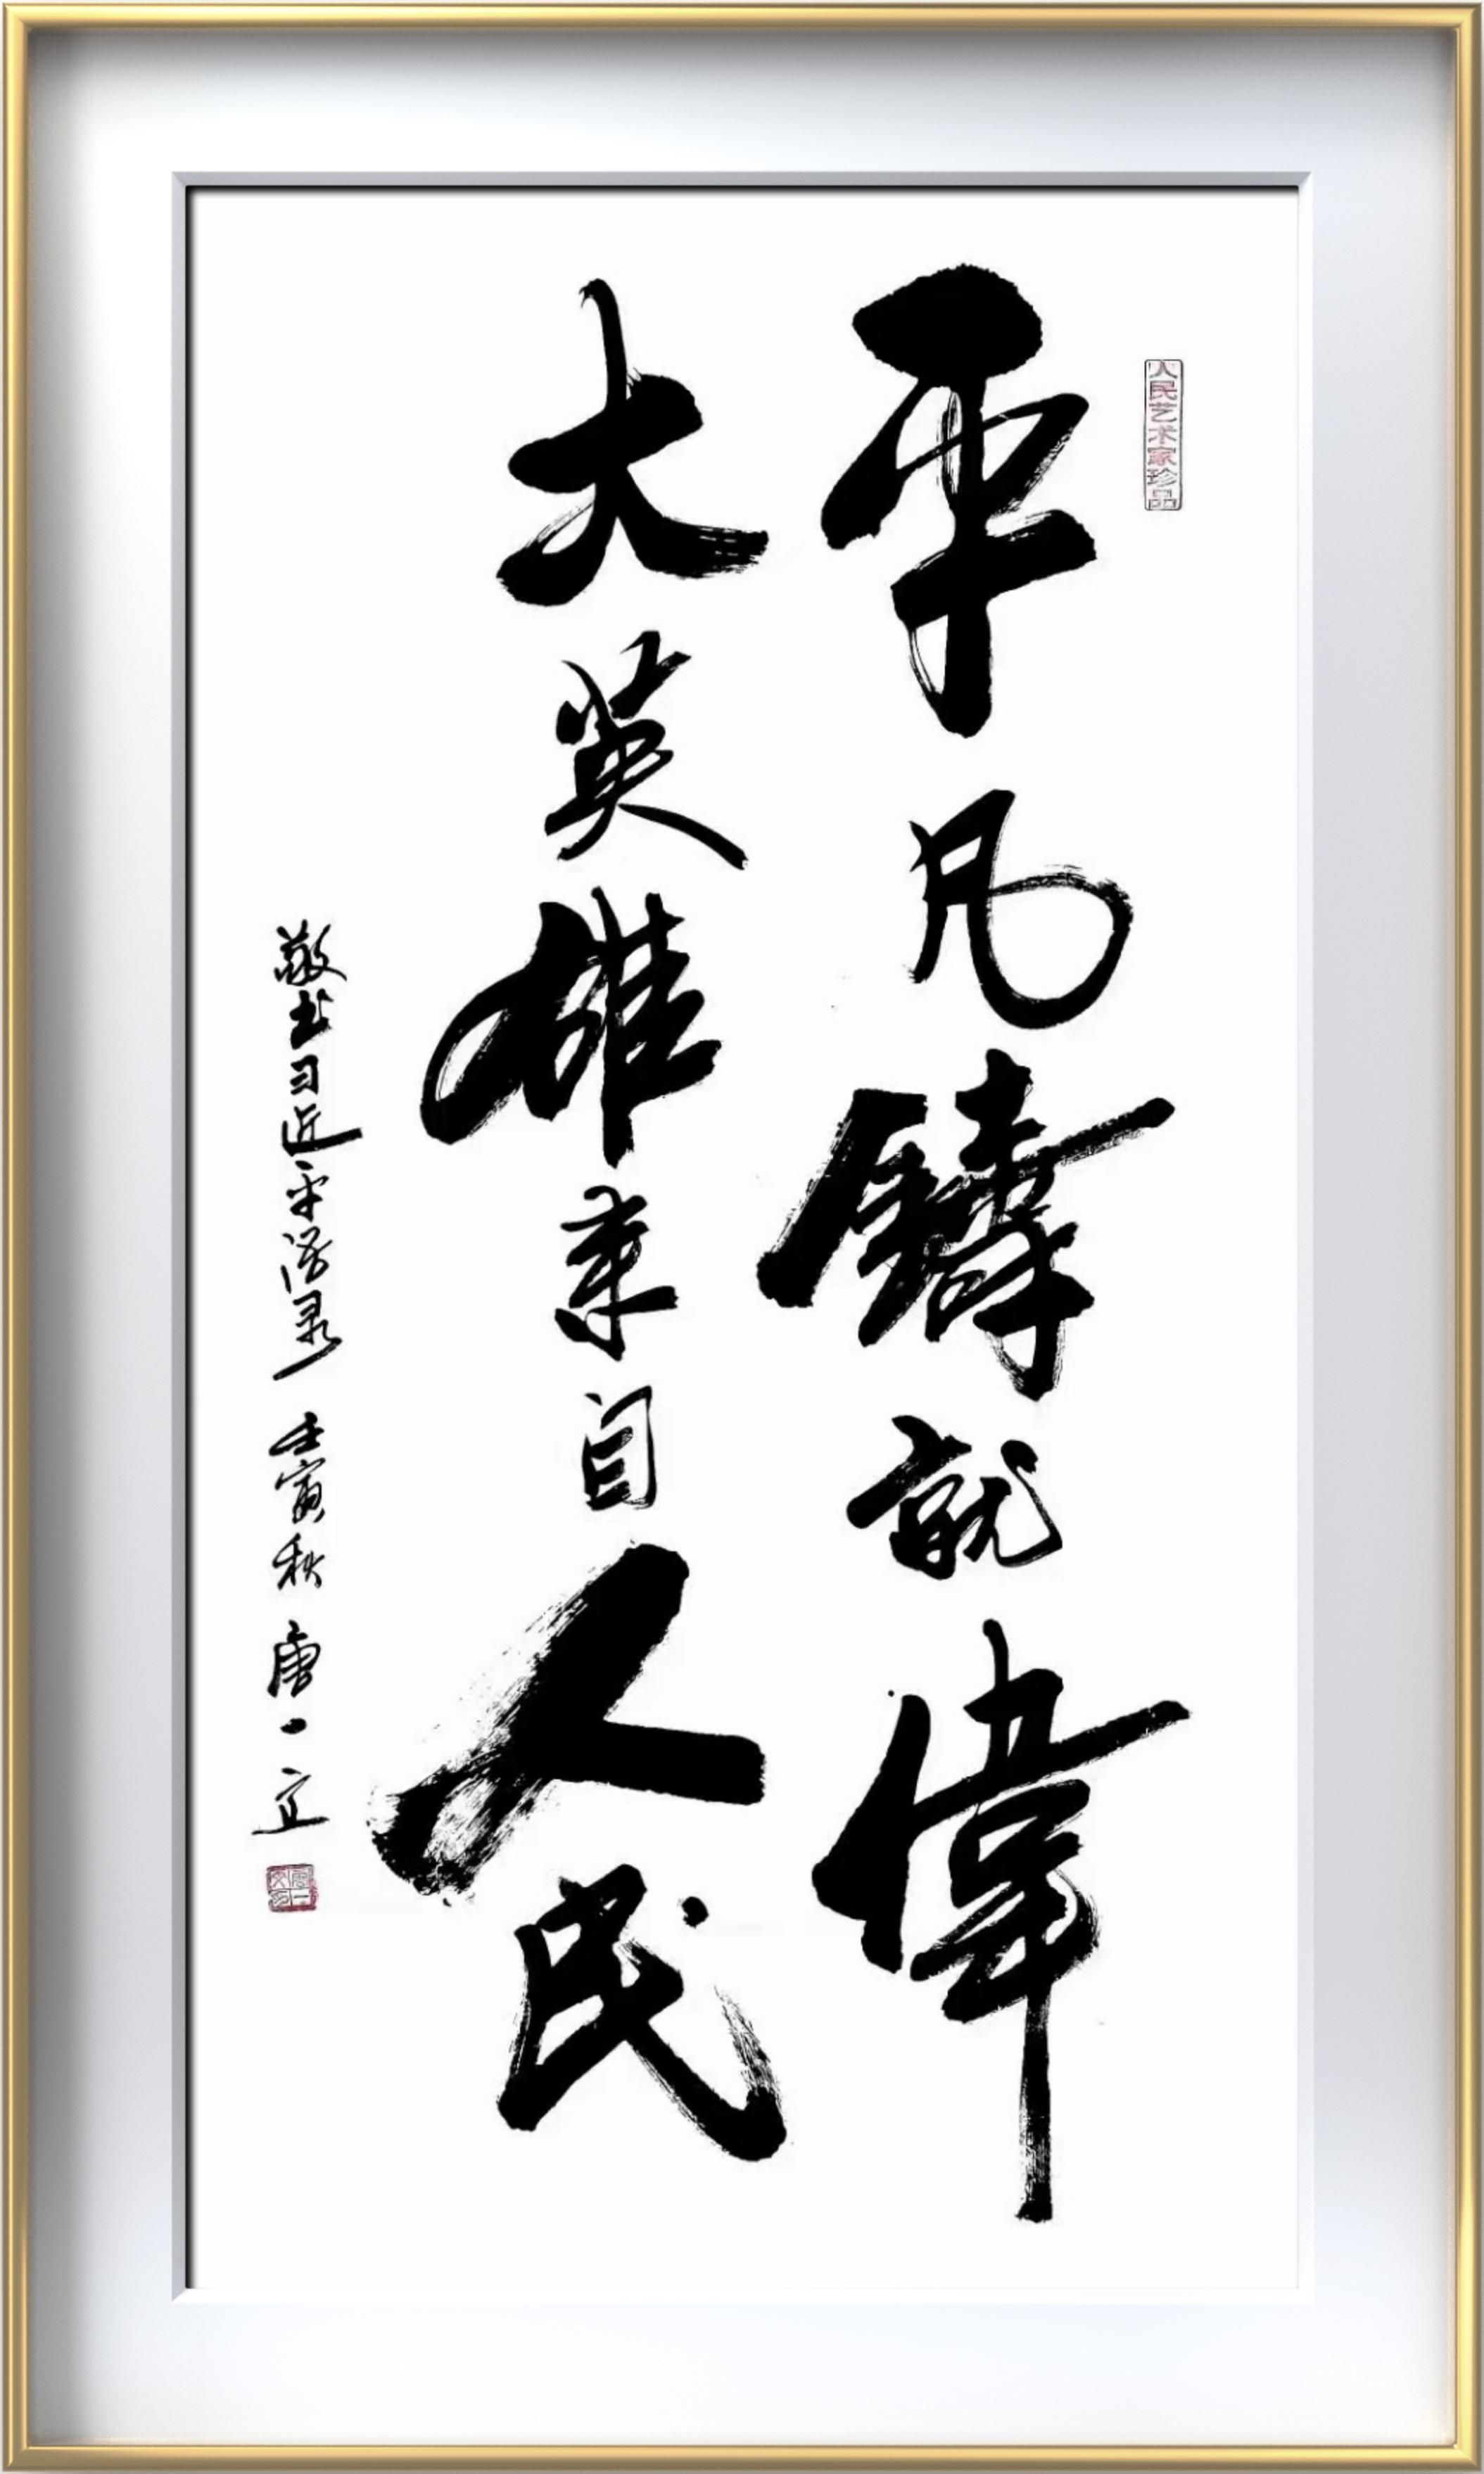 人民艺术家珍品
平凡鑄就偉
大英雄来自人民
敬书习近平语录 壬寅秋 唐一正